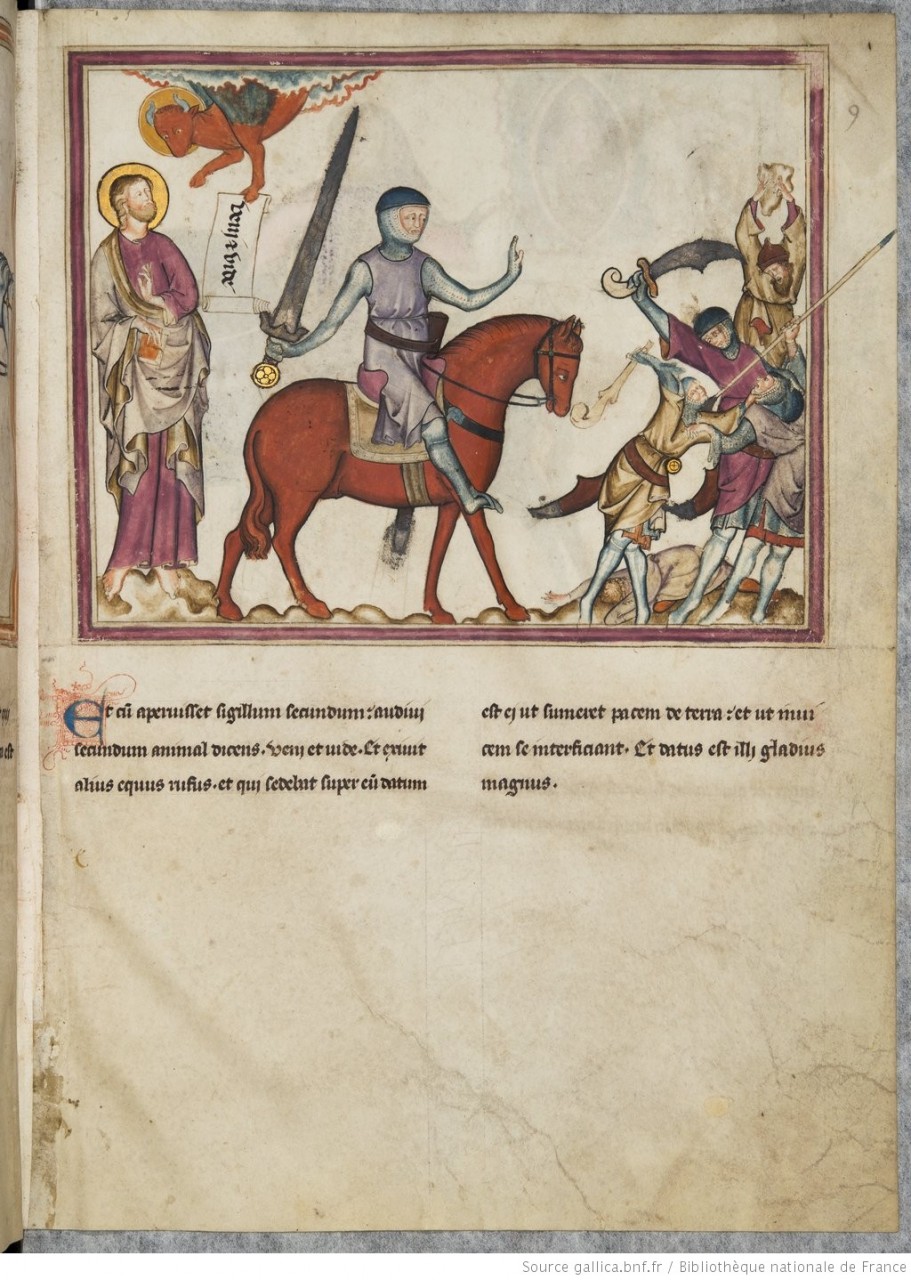 9
veni et vide
Et cū aperuisset sigillum secundum: audivi
secundum animal dicens. veni et vide. Et exiuit
alius equus rufus. et qui sedebat super eū datum
est ei ut sumeret pacem de terra: et ut inui
cem se interficiant. Et datus est illi gladius
magnus.
Source gallica.bnf.fr / Bibliothèque nationale de France